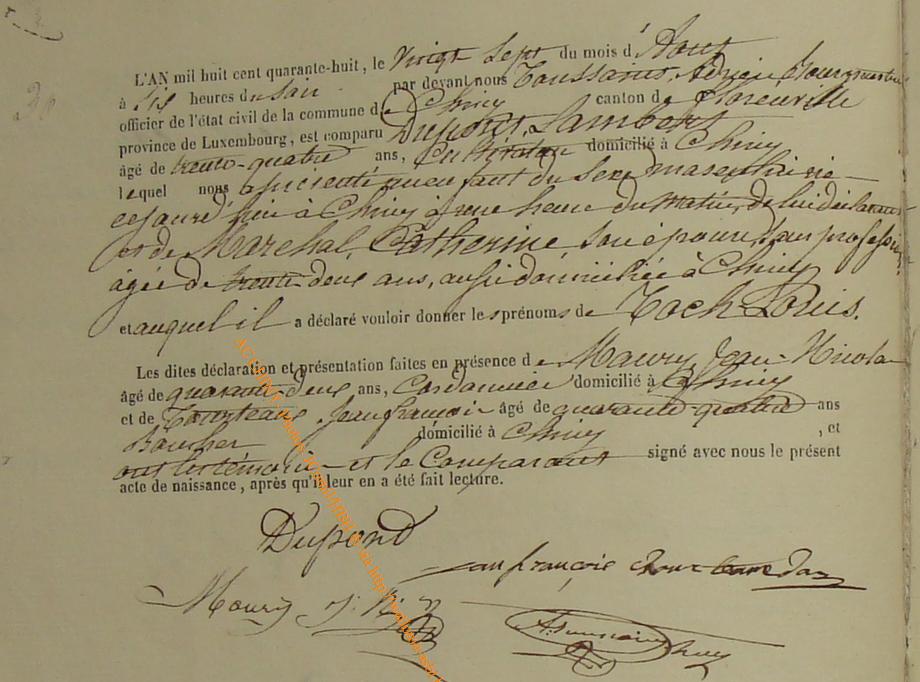 L'AN mil huit cent quarante-huit, le Vingt Sept du mois d'Aout
à Six heures du Soir par devant nous Toussaint, Adrien Bourgmestre
officier de l'état civil de la commune de Chiny canton de Florenville
province de Luxembourg, est comparu Dupond, Lambert
âgé de trente-quatre ans, Cultivateur domicilié à Chiny
lequel nous a présenté un enfant du Sexe masculin né
cejourd'hui à Chiny à une heure du matin, de lui déclarant
et de Maréchal, Catherine Son épouse, Sans profession,
âgée de trente deux ans, aussi domiciliée à Chiny
et auquel il a déclaré vouloir donner les prénoms de Louis.
Les dites déclaration et présentation faites en présence de Maury, Jean-Nicolas
âgé de quarante-deux ans, Cordonnier domicilié à Chiny
et de Jean françois âgé de quarante quatre ans
domicilié à Chiny , et
ont les témoins et le Comparant signé avec nous le présent
acte de naissance, après qu'il leur en a été fait lecture.
Dupond
françois
Maury J: N: